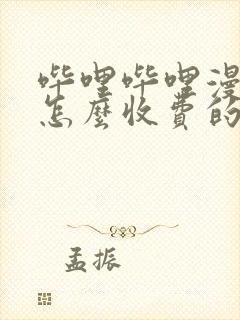 哔哩哔哩漫
怎麼收費的
孟振